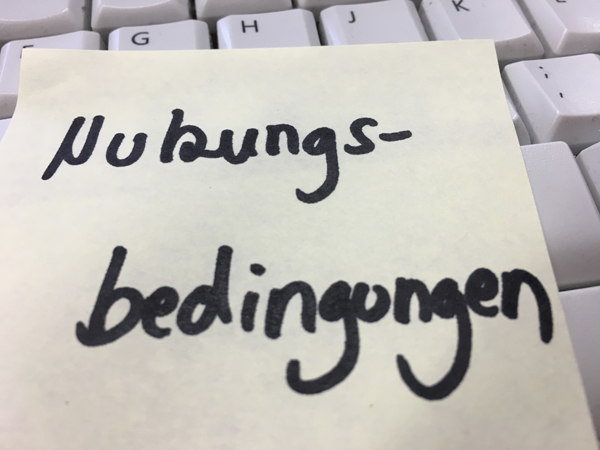 G H J K
Nutzungs-
bedingungen